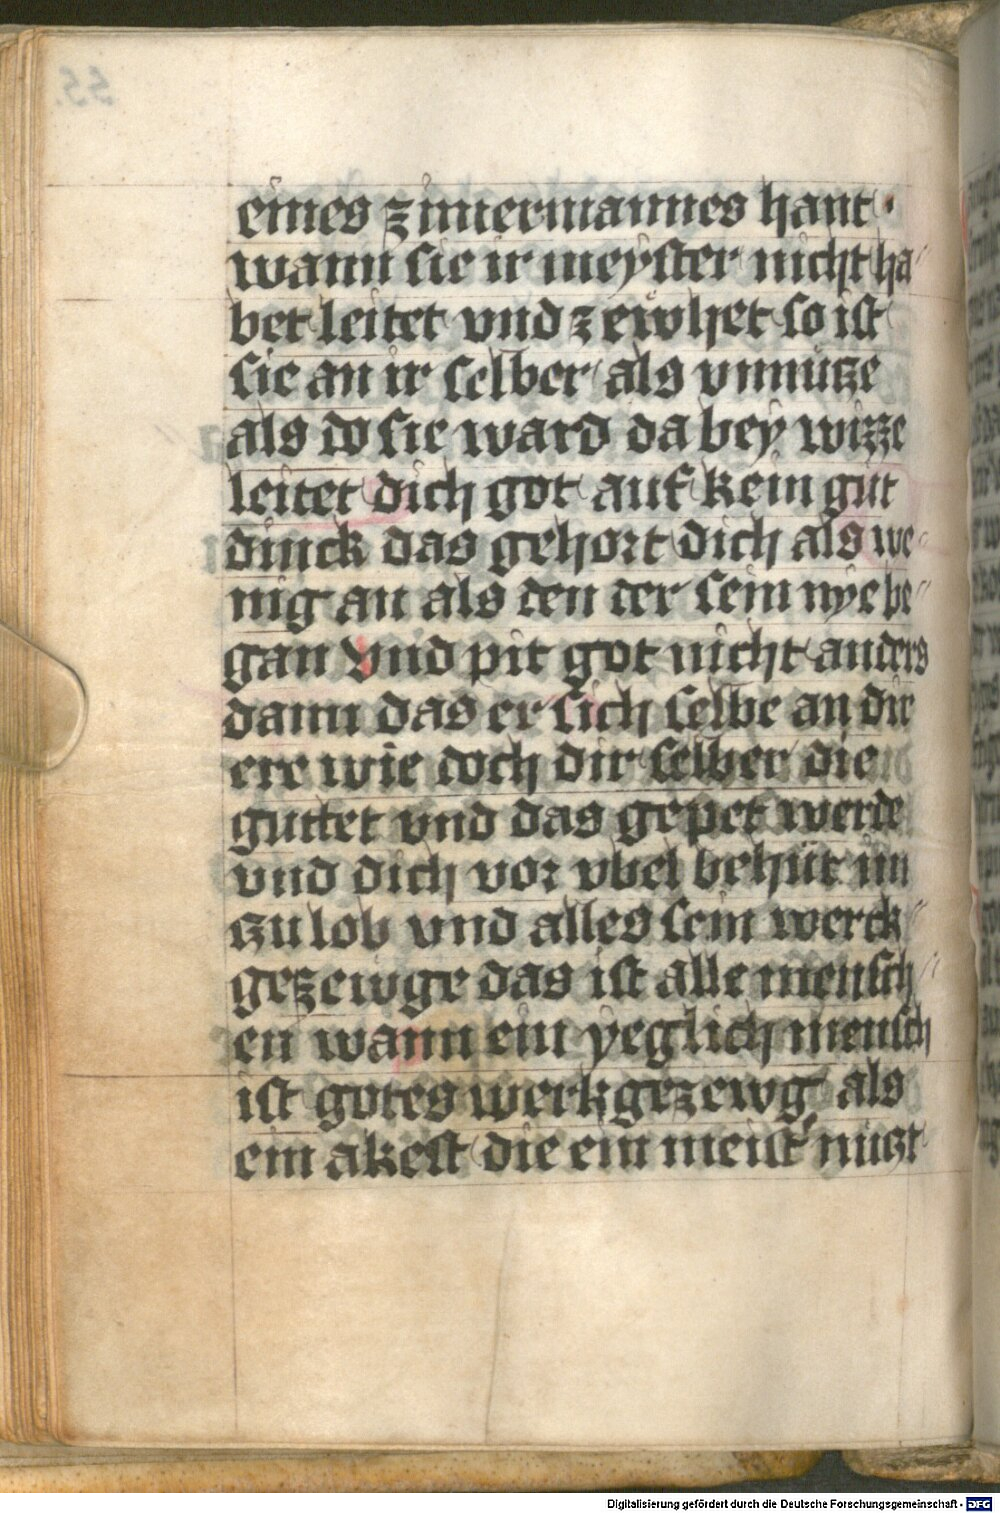 eines zimermannes hant ·
wann sie ir meyster nicht ha"
bet leitet vnd zewhet so ist
sie an ir selber als vnnutze
als do sie ward da bey wizze
leitet dich got auf kein gut
dinck das gehort dich als we"
nig an als den der sein nye be"
gan Vnd pit got nicht anders
dann das er sich selbe an dir
ere wie doch dir selber die
guttet vnd das gepet werde
vnd dich vor vbel behüt im
zu lob vnd alles sein werck"
gezewge das ist alle mensch"
en wann ein yeglich mensch
ist gotes werkgezewg als
ein akest die ein meist' nuczt
Digitalisierung gefördert durch die Deutsche Forschungsgemeinschaft - DFG